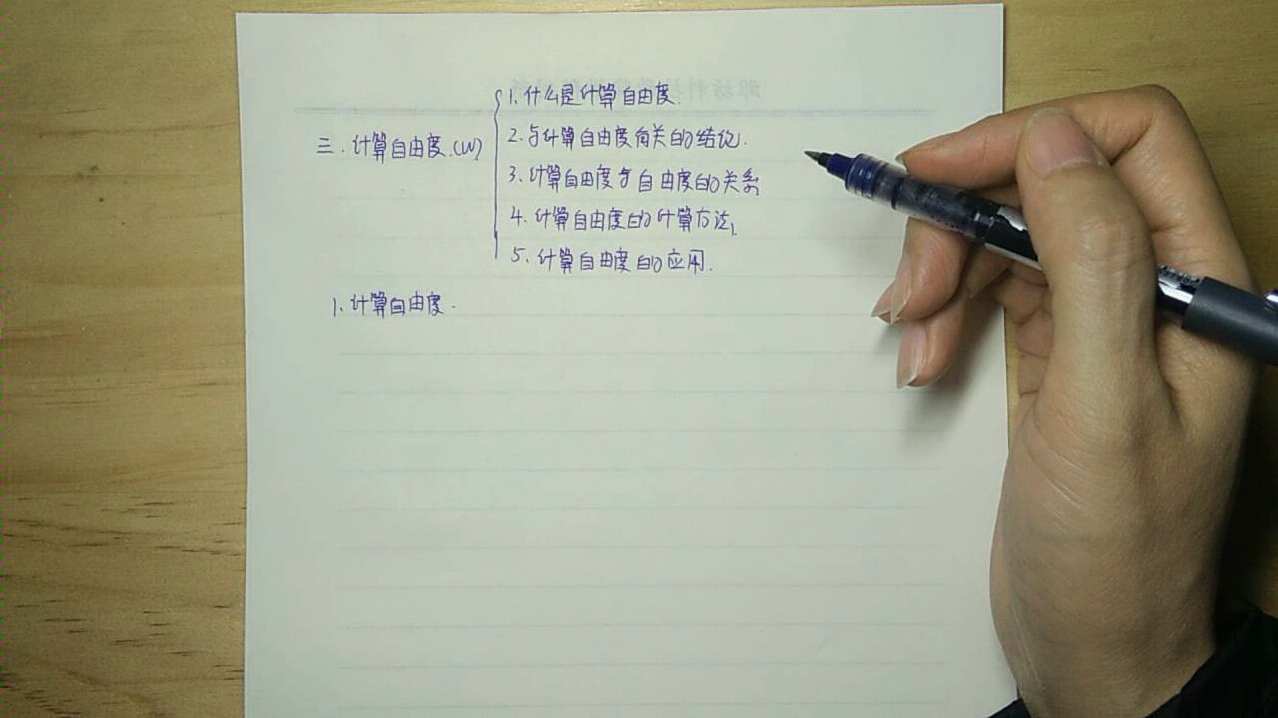 三.计算自由度.(W)
1.什么是计算自由度.
2.与计算自由度有关的结论.
3、计算自由度与自由度的关系
4.计算自由度的计算方法.
5.计算自由度的应用.
1.计算自由度.